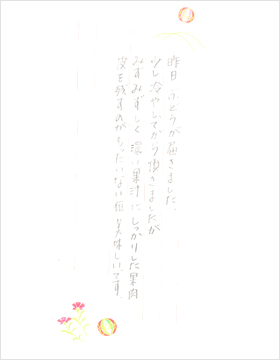 昨日 ぶどうが届きました。
少し冷やしてから頂きましたが
みずみずしく 濃い果汁に しっかりした果肉
皮を残すのがもったいない位 美味しいです。